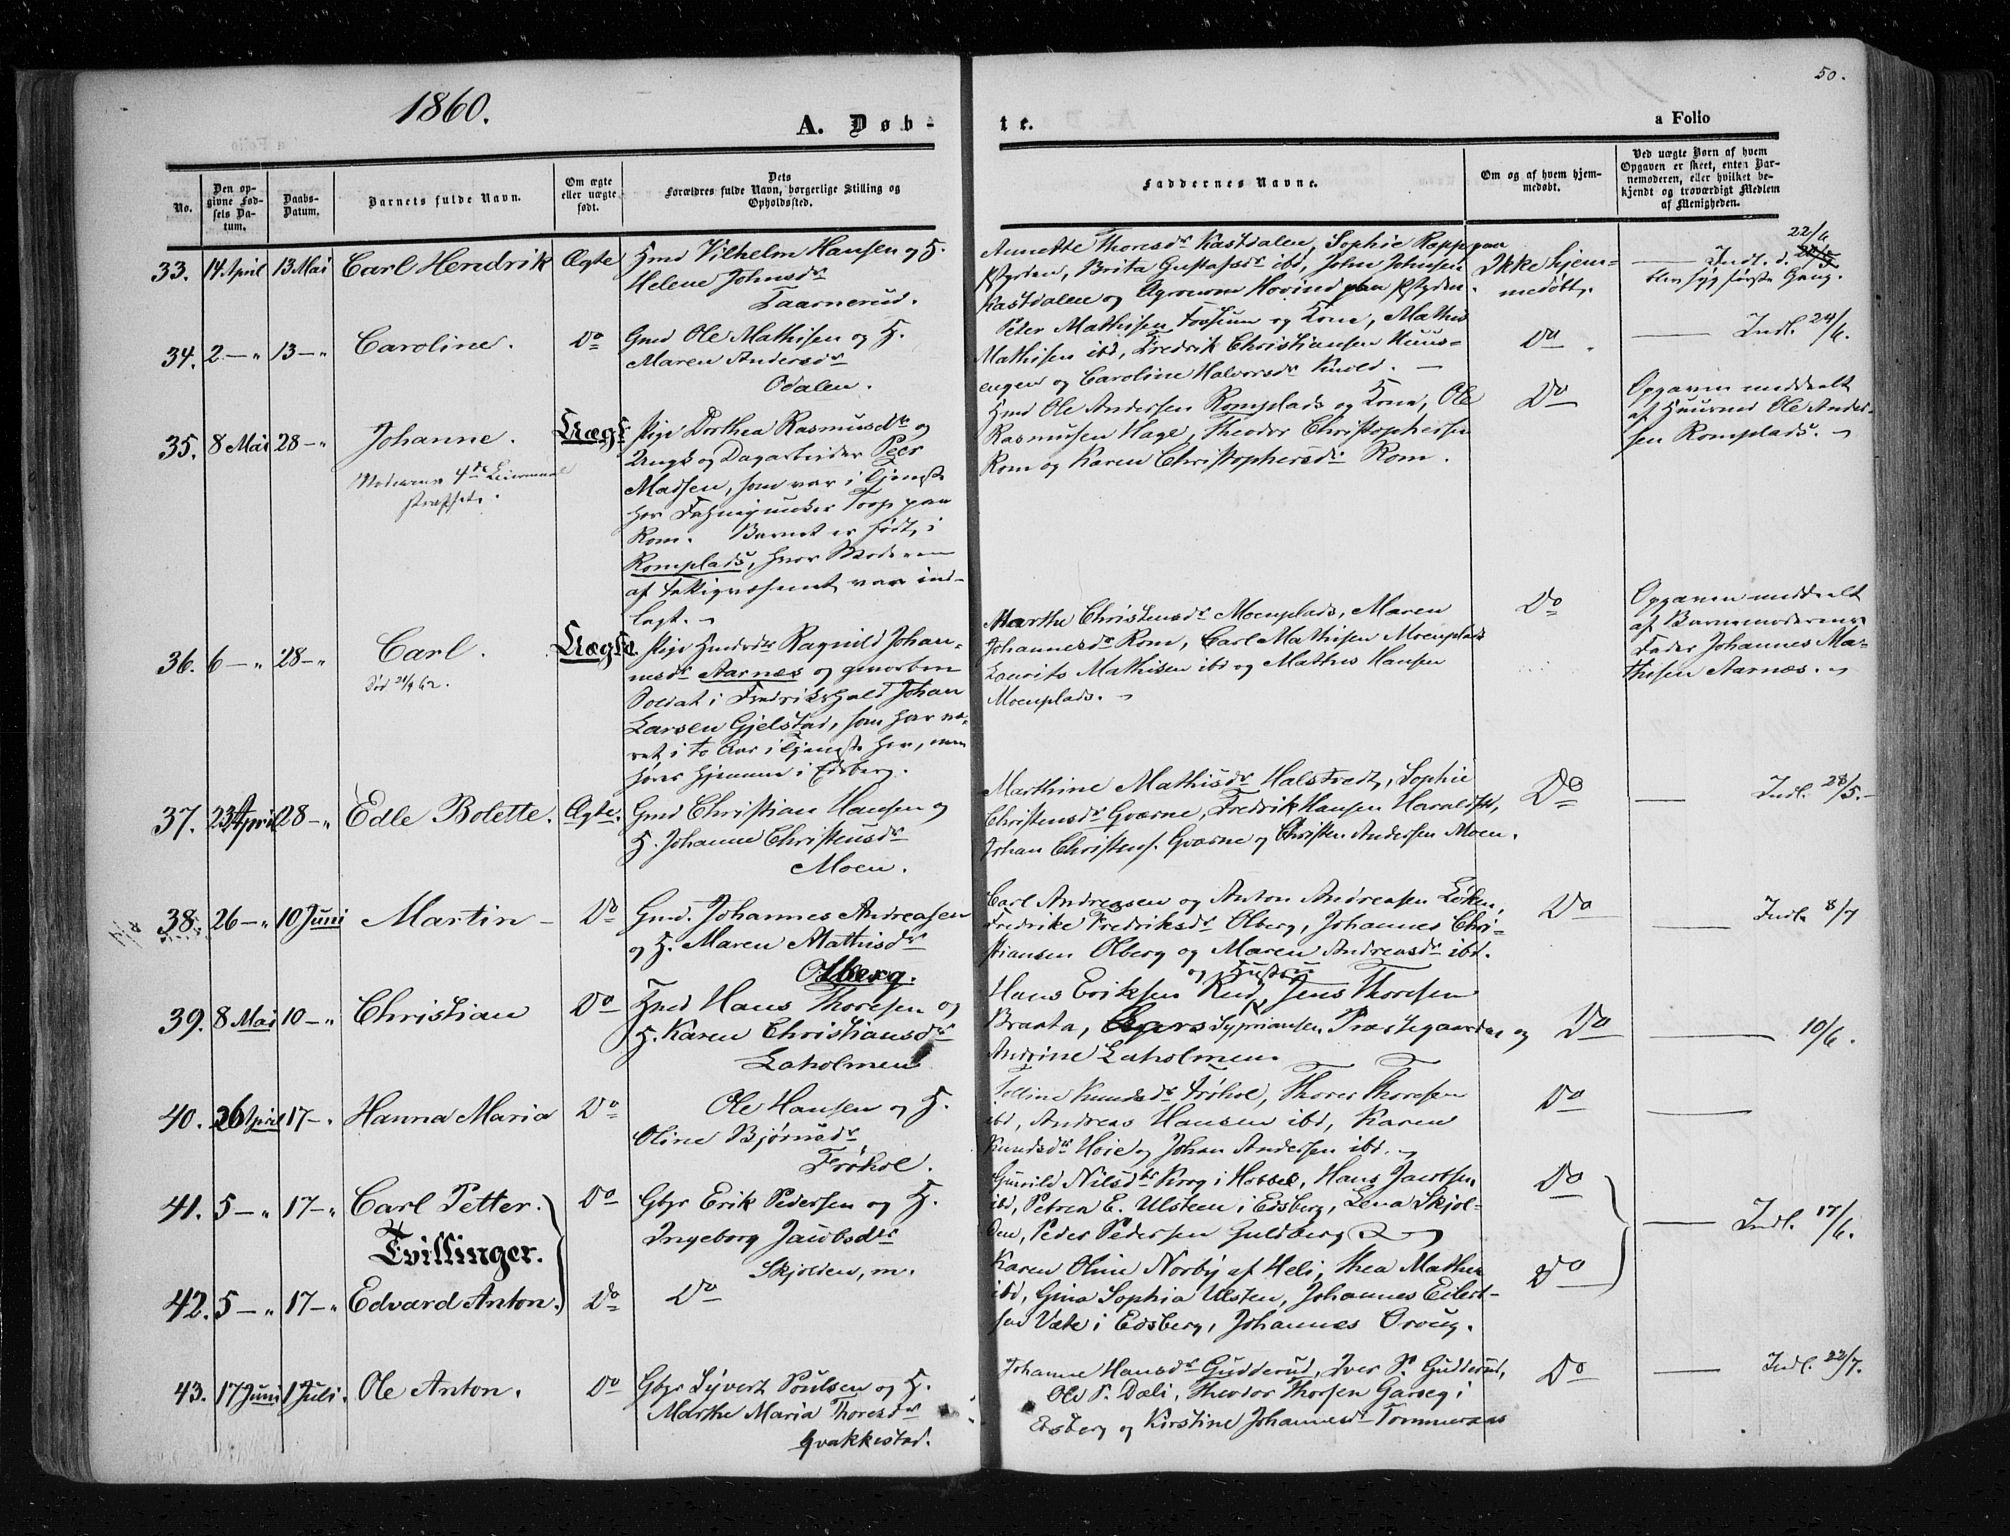 50.
1860.
A. Døb-
te.
a Folio
No.
Den opgivne Fødsels Datum.
Daabs-Datum.
Barnets fulde Navn.
Om ægte eller uægte født.
Dets Forældres fulde Navn, borgerlige Stilling og Opholdssted.
Faddernes Navne.
Om og af hvem hjemmedøbt.
Ved uægte Børn af hvem Opgaven er skeet, enten Barnemoderen, eller hvilket bekjendt og troværdigt Medlem af Menigheden.
33. 14 April 13 Mai Carl Hendrik Ægte
Hmd Vilhelm Hansen og H.
Helene Johnsdr
Taarnerud.
Annette Thoresdr Kastdalen, Sophie
Brita Gustafsdr ibd, John Johnsen
Kastdalen og Hovind
Ikke hjem-
medøbt.
22/6
Indl. d.
blev syg første Gang.
34. 2 — " 13 — " Caroline. Do
Gmd Ole Mathisen og H.
Maren Andersdr
Odalen.
Peder Mathisen Fossum og Kone, Mathis
Mathisen ibd, Fredrik Christiansen Huus-
engen og Caroline Halvorsdr Knold. —
Do
— Indl. 24/6.
35. 8 Mai 28 — " Johanne. Uægte
Moderens 4de Leiermaal
Pige Dorthea Rasmusdr og
Ungk og Dagarbeider Peer
Madsen, som var i Tjeneste
her Torp paa
Rom. Barnet er født i
Romplads, hvor Moderen
af Fattigvæsenet var ind-
lagt.
Hmd Ole Andersen Romplads og Kone, Ole
Rasmusen Hage, Theodor Christophersen
Rom og Karen Christophersdr Rom.
Do
Opgaven meddeelt
af Huusmd Ole Ander-
sen Romplads.
36. 6 — " 28 — " Carl. Uægte.
Død 21/9 62.
Pige Hmdsdr Ragnild Johan-
nesdr Aarnæs og gevorben
Soldat i Fredrikshald Johan
Larsen Gjelstad, som har væ-
ret i to Aar i Tjeneste her, men
hører hjemme i Edsberg.
Marthe Christensdr Moenplads, Maren
Johannesdr Rom, Carl Mathisen Moenplads
Laurits Mathisen ibd og Mathis Hansen
Moenplads.
Do
Opgaven meddeelt
af Barnemoderens
Fader Johannes Ma-
thisen Aarnæs.
37. 23 April 28 — " Edle Bolette. Ægte.
Gmd Christian Hansen og
H. Johanne Christensdr
Moen.
Marthine Mathisdr Halstvedt, Sophie
Christensdr Gvarne, Fredrik Hansen
Johan Christens. Gvarne og Christen Andersen Moen.
Do
— Indl. 28/5.
38. 26 — " 10 Juni Martin Do
Gmd. Johannes Andreasen
og H. Maren Mathisdr
Olberg.
Carl Andreasen og Anton Andreasen Løken,
Fredrike Fredriksdr Olberg, Johannes Chri-
stiansen Olberg og Maren Andreasdr ibd.
Do
— Indl. 8/7
39. 8 Mai 10 — " Christian Do
Hmd Hans Thoresen og
H. Karen Christiansdr
Laholmen
og Hustru
Hans Eriksen Rud, Jens Thoresen
Braata, Lars Sypriansen Præstegaarden og
Andrine Laholmen
Do
— 10/6.
40. 26 April 17 — " Hanna Maria Do
Ole Hansen og H.
Oline Bjørnsdr
Frøhol.
Knudsdr Frøhol, Thorer Thoresen
ibd, Andreas Hansen ibd, Karen
Knudsdr Hoie og Johan Andersen ibd.
Do
—
41. 5 — " 17 — " Carl Petter. Do
Tvillinger.
Gbr Erik Pedersen og H.
Ingeborg Jacobsdr
Skjolden, m.
Gunild Nilsdr Krog i Hobbel, Hans Jacobsen
ibd, Petrea E. Ulsteen i Edsberg, Lena Skjol-
den, Peder Pedersen Guldberg
Do
— Indl. 17/6.
42. 5 — " 17 — " Edvard Anton. Do
Do
Karen Oline Norby af Heli, Thea Mathea
ibd, Gina Sophia Ulsten, Johannes Eilert-
sen Væte i Edsberg, Johannes Oroug.
Do
43. 17 Juni 1 Juli. Ole Anton. Do
Gbr Syvert Poulsen og H.
Marthe Maria Thoresdr
Qvakkestad.
Johanne Hansdr Gudderud, Iver P. Gudderud,
Ole P. Dæli, Theodor Thorsen Garseg i
Edsberg og Kirstine Johannesdr Tommeraas
Do
— Indl. 22/7.